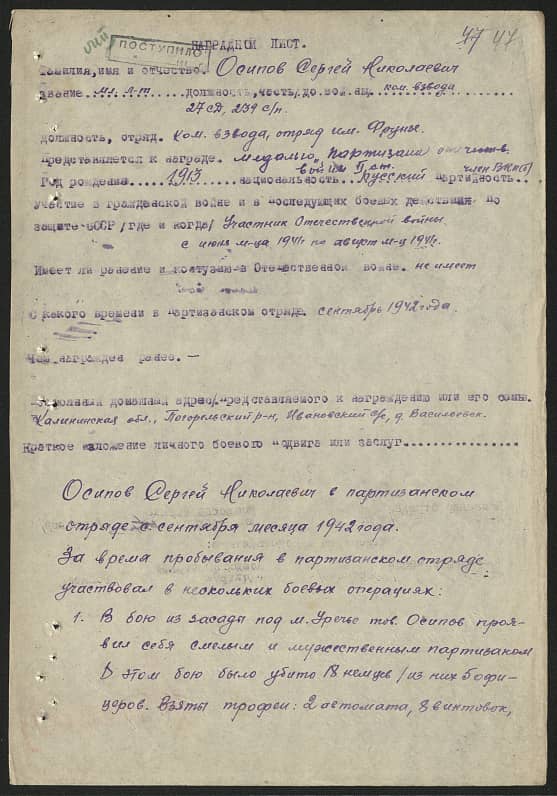 47 47
ПОСТУПИЛО
НАГРАДНОЙ ЛИСТ.
Фамилия, имя и отчество. Осипов Сергей Николаевич
Звание....мл. л-т......должность, часть/до войны. ком. взвода
27 СД, 239 с/п.
должность, отряд. ком. взвода, отряд им. Фрунзе.
Представляется к награде. медалью „Партизан отечеств.
войны II ст.
Год рождения......1913......национальность..Русский партийность..член ВКП(б)
Участие в гражданской войне и в последующих боевых действиях по
защите СССР /где и когда/ Участник Отечественной войны
с июня м-ца 1941г по август м-ц 1941г.
Имеет ли ранение и контузию в Отечественной войне. не имеет
С какого времени в партизанском отряде. сентябрь 1942 года.
Чем награжден ранее. —
домашний адрес/представляемого к награждению или его семьи.
Калининская обл., Погорельский р-н, Ивановский с/с, д. Васильевск.
Краткое изложение личного боевого подвига или заслуг..................
Осипов Сергей Николаевич в партизанском
отряде с сентября месяца 1942 года.
За время пробывания в партизанском отряде
участвовал в нескольких боевых операциях:
1. В бою из засады под м. Уречье тов. Осипов проя-
вил себя смелым и мужественным партизаном
В этом бою было убито 18 немцев /из них 5 офи-
церов. Взяты трофеи: 2 автомата, 8 винтовок,